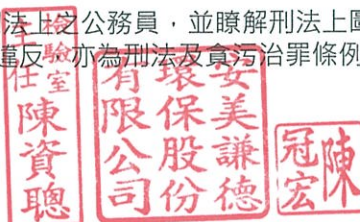 法上之公務員，並瞭解刑法上
違反，亦為刑法及貪污治罪條例
檢驗室
主任
陳資聰
安美謙德
環保股份
有限公司
陳
冠宏